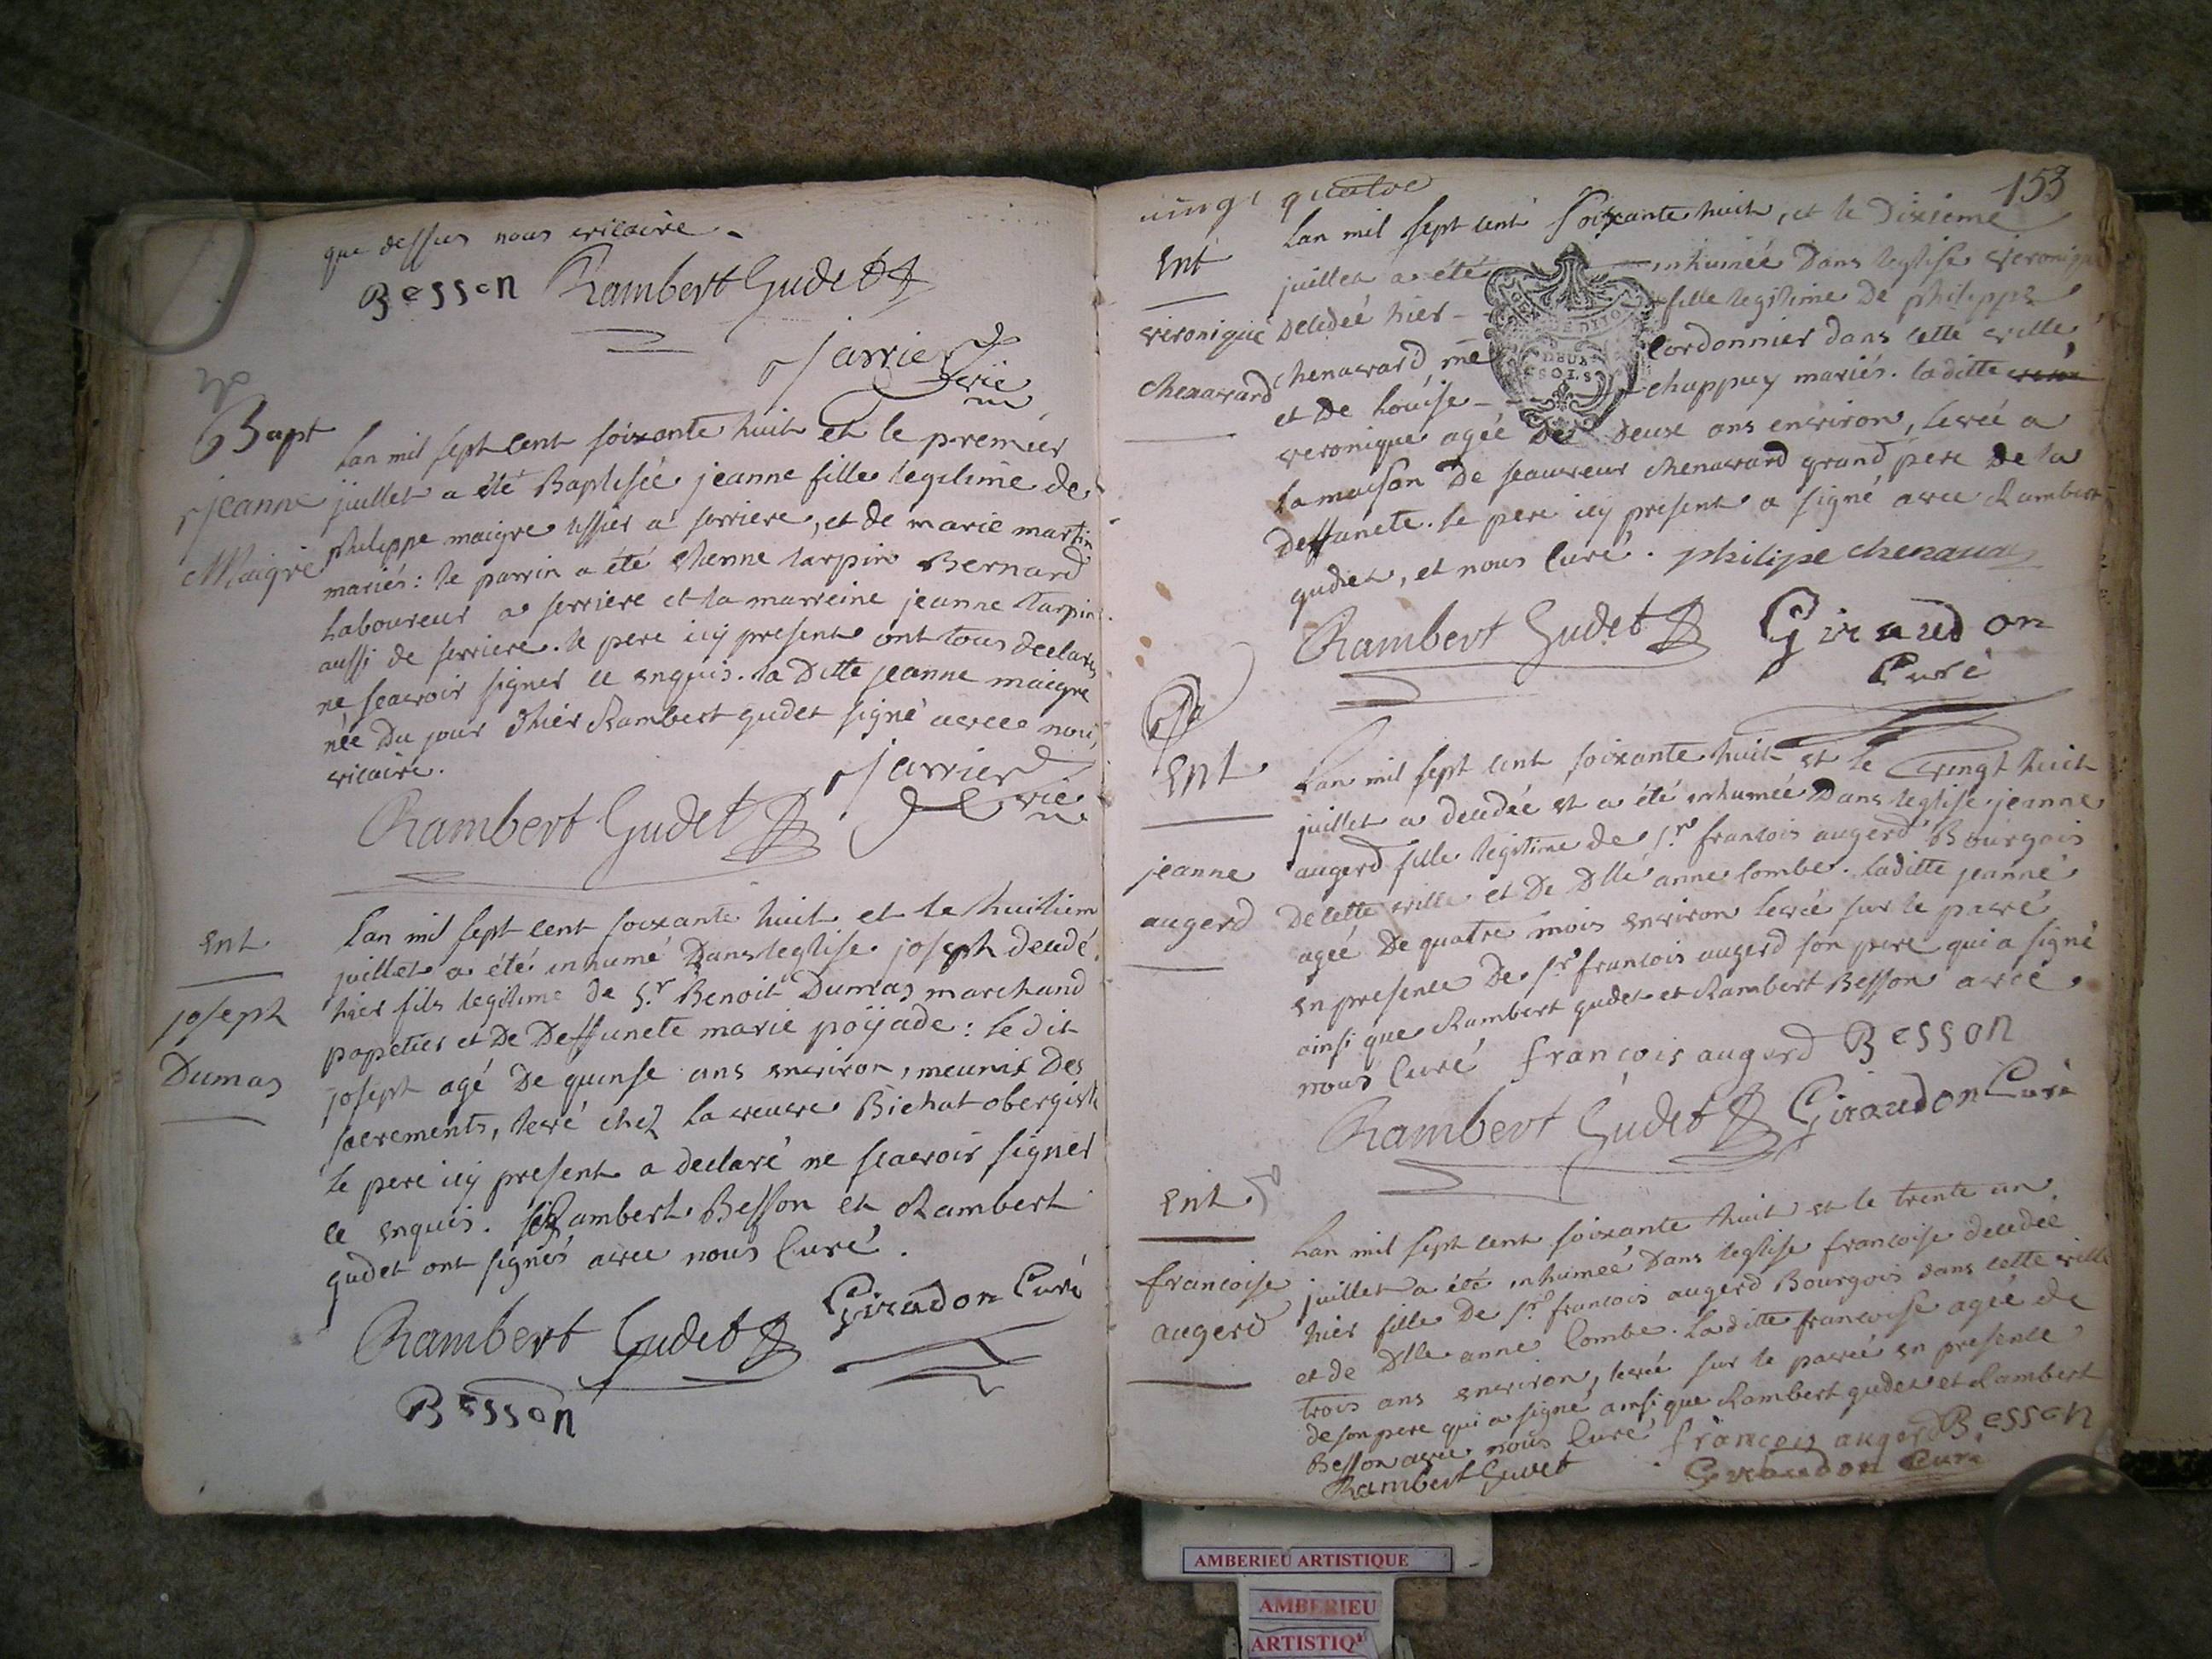 que dessus nous vicaire.
Besson Rambert Gudet
Jarrier
vic
Bapt
jeanne
Maigre
Lan mil sept cent soixante huit et le premier
juillet a été Baptisée jeanne fille legitime de
philippe maigre ussier a serriere, et de marie martin
mariés: le parrin a été etienne tarpin Bernard
Laboureur a serriere et la marreine jeanne tarpin
aussi de serriere. le pere icy present ont tous declarés
ne scavoir signer ce enquis. la ditte jeanne maigre
née du jour dhier Rambert gudet signé avec nous
vicaire.
Jarrier
vic
Rambert Gudet
Ent
joseph
Dumas
Lan mil sept cent soixante huit et le huitiem
juillet a été inhumé Dans leglise joseph decedé
hier fils legitime de Sr Benoit Dumas marchand
papetier et De Deffuncte marie poÿade: le dit
joseph agé De quinse ans environ, meunis Des
sacrements, levé chez la veuve Bichat obergiste
le pere icy present a declaré ne scavoir signer
ce enquis. Rambert Besson et Rambert
gudet ont signés avec nous Curé.
Rambert Gudet Giraudon Curé
Besson
153
vingt quatre
Ent
veronique
chenavard
Lan mil sept cent soixante huit, et le Dixieme
juillet a été inhumée Dans leglise veronique
Decedeé hier fille legitime De philippe
chenavard, me Cordonnier dans cette ville,
et De Louise chappuy mariés. laditte
veronique ageé De deux ans environ, leveé a
la maison De seauveur chenavard grand pere De la
deffuncte. le pere icy present a signé avec Rambert
gudet, et nous Curé. philipe chenavard
Rambert Gudet Giraudon
Curé
Ent
jeanne
augerd
Lan mil sept cent soixante huit et le vingt huit
juillet a decedée et a été inhumée Dans leglise jeanne
augerd fille legitime de Sr francois augerd Bourgois
De cette ville et De Dlle anne Combe. laditte jeanne
ageé De quatre mois environ leveé sur le pavé
en presence De Sr francois augerd son pere qui a signé
ainsi que Rambert gudet et Rambert Besson avec
nous Curé françois augerd Besson
Rambert Gudet Giraudon Curé
Ent
francoise
augerd
Lan mil sept cent soixante huit et le trente un
juillet a été inhumeé Dans leglise francoise decedeé
hier fille De Sr francois augerd Bourgois dans cette ville
et de Dlle anne Combe. Laditte francoise ageé de
trois ans environ, leveé sur le paveé en presence
de son pere qui a signé ainsi que Rambert gudet et Rambert
Besson avec nous Curé françois augerd Besson
Rambert Gudet Giraudon Curé
AMBERIEU ARTISTIQUE
AMBERIEU
ARTISTIQ